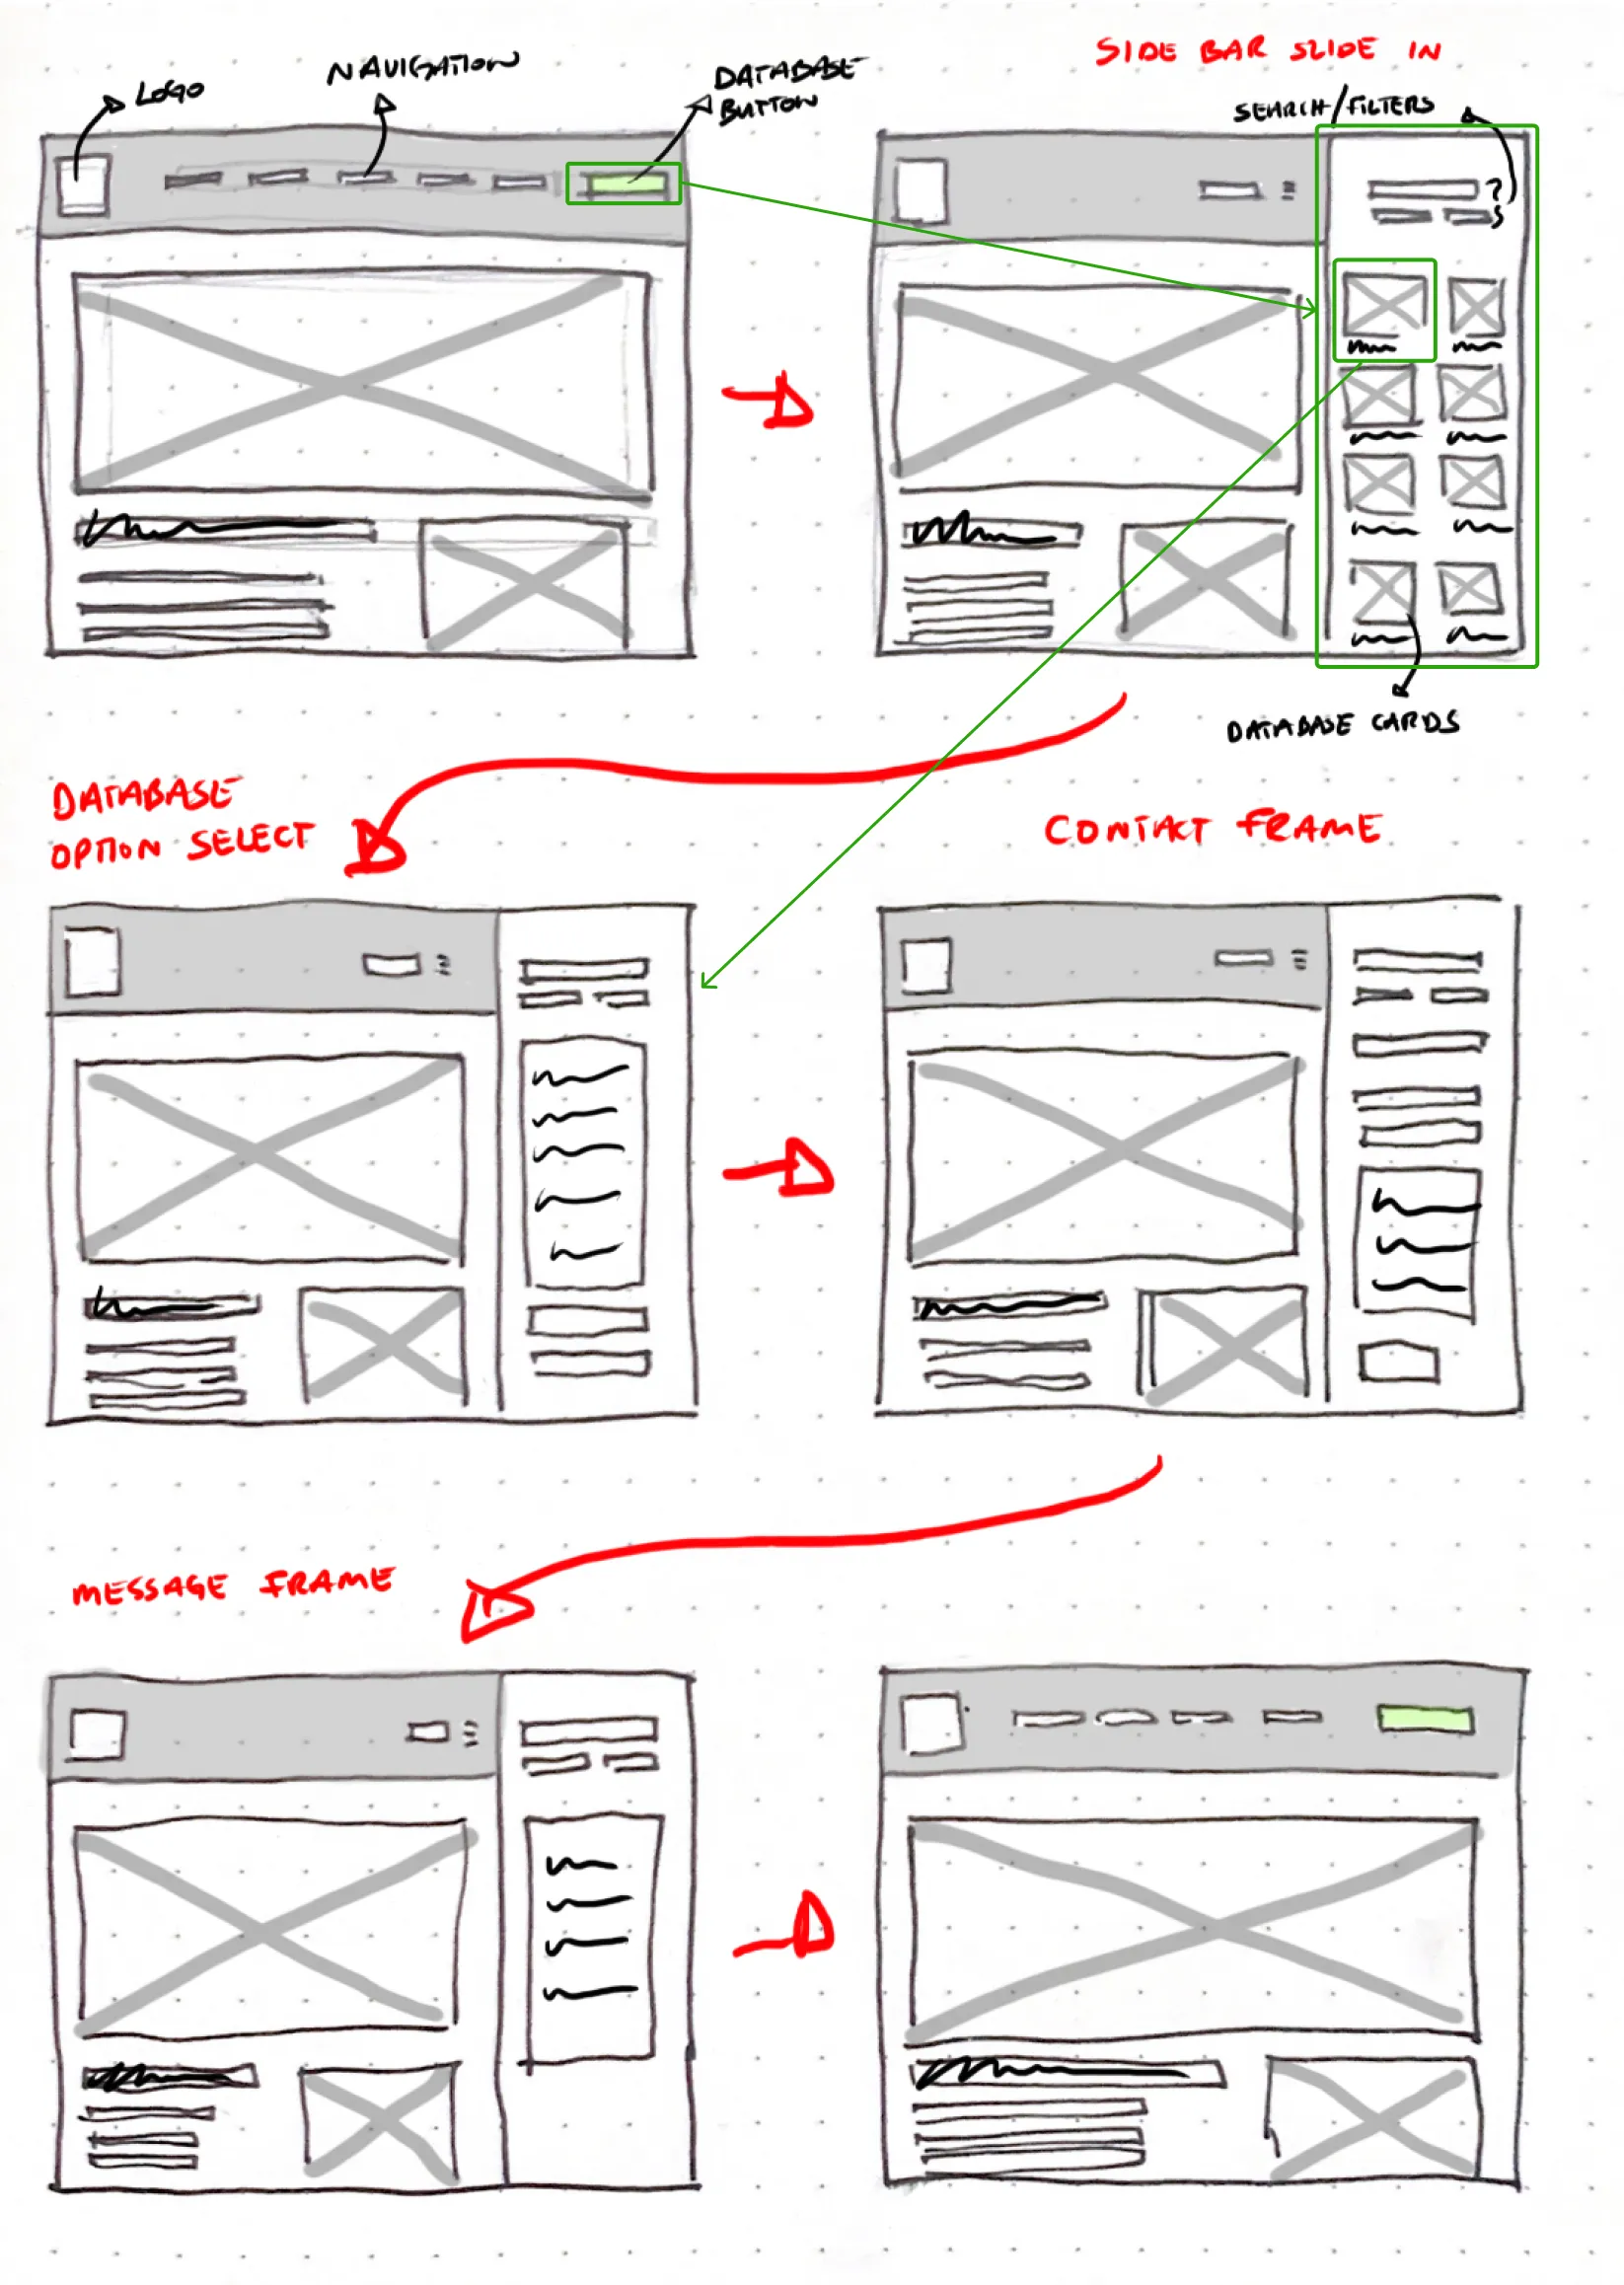 LOGO
NAVIGATION
DATABASE
BUTTON
SIDE BAR SLIDE IN
SEARCH/FILTERS
?
DATABASE CARDS
DATABASE
OPTION SELECT
CONTACT FRAME
MESSAGE FRAME